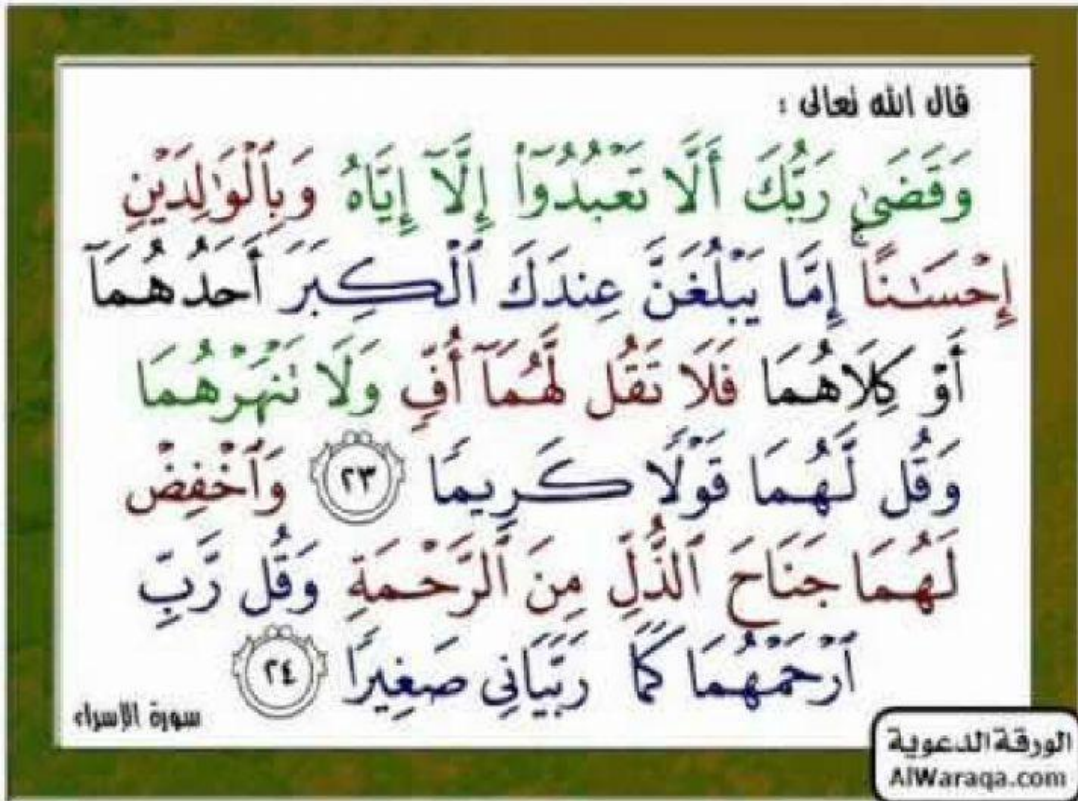 قال الله تعالى :
وَقَضَىٰ رَبُّكَ أَلَّا تَعْبُدُوٓا۟ إِلَّآ إِيَّاهُ وَبِٱلْوَٰلِدَيْنِ
إِحْسَـٰنًا ۚ إِمَّا يَبْلُغَنَّ عِندَكَ ٱلْكِبَرَ أَحَدُهُمَآ
أَوْ كِلَاهُمَا فَلَا تَقُل لَّهُمَآ أُفٍّ وَلَا تَنْهَرْهُمَا
وَقُل لَّهُمَا قَوْلًا كَرِيمًا ٢٣ وَٱخْفِضْ
لَهُمَا جَنَاحَ ٱلذُّلِّ مِنَ ٱلرَّحْمَةِ وَقُل رَّبِّ
ٱرْحَمْهُمَا كَمَا رَبَّيَانِى صَغِيرًا ٢٤
سورة الإسراء
الورقة الدعوية
AlWaraqa.com